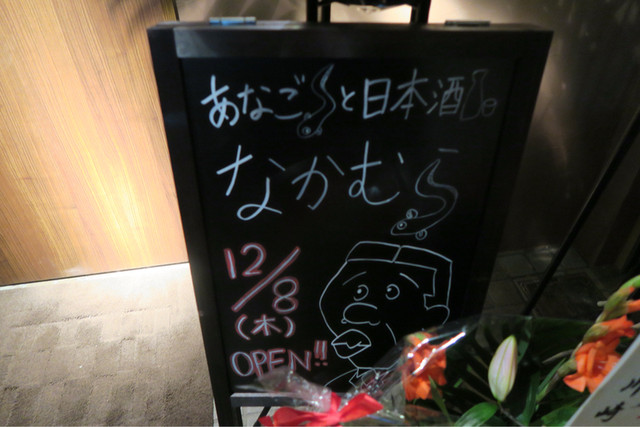 あなごと日本酒
なかむら
12/8
(木)
OPEN!!